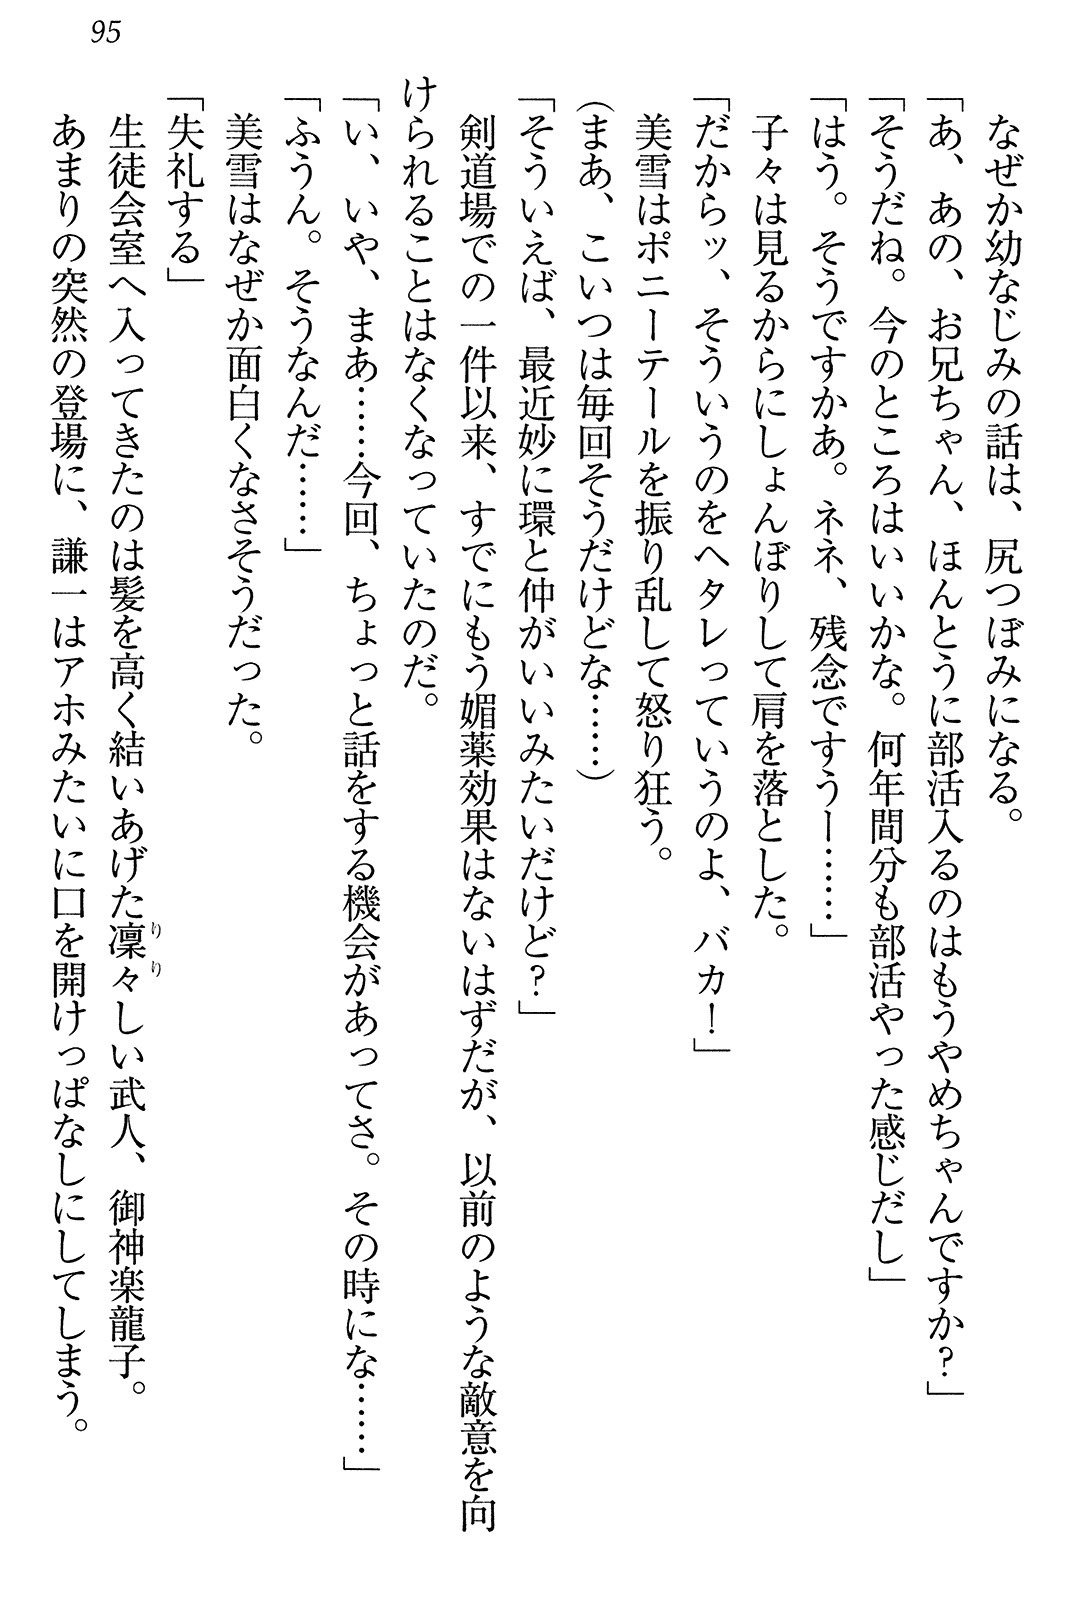 95
なぜか幼なじみの話は、尻つぼみになる。
「あ、あの、お兄ちゃん、ほんとうに部活入るのはもうやめちゃんですか?」
「そうだね。今のところはいいかな。何年間分も部活やった感じだし」
「はう。そうですかあ。ネネ、残念ですうー……」
子々は見るからにしょんぼりして肩を落とした。
「だからッ、そういうのをヘタレっていうのよ、バカ!」
美雪はポニーテールを振り乱して怒り狂う。
(まあ、こいつは毎回そうだけどな……)
「そういえば、最近妙に環と仲がいいみたいだけど?」
剣道場での一件以来、すでにもう媚薬効果はないはずだが、以前のような敵意を向
けられることはなくなっていたのだ。
「い、いや、まあ……今回、ちょっと話をする機会があってさ。その時にな……」
「ふうん。そうなんだ……」
美雪はなぜか面白くなさそうだった。
「失礼する」
生徒会室へ入ってきたのは髪を高く結いあげた凜々しい武人、御神楽龍子。
りり
あまりの突然の登場に、謙一はアホみたいに口を開けっぱなしにしてしまう。